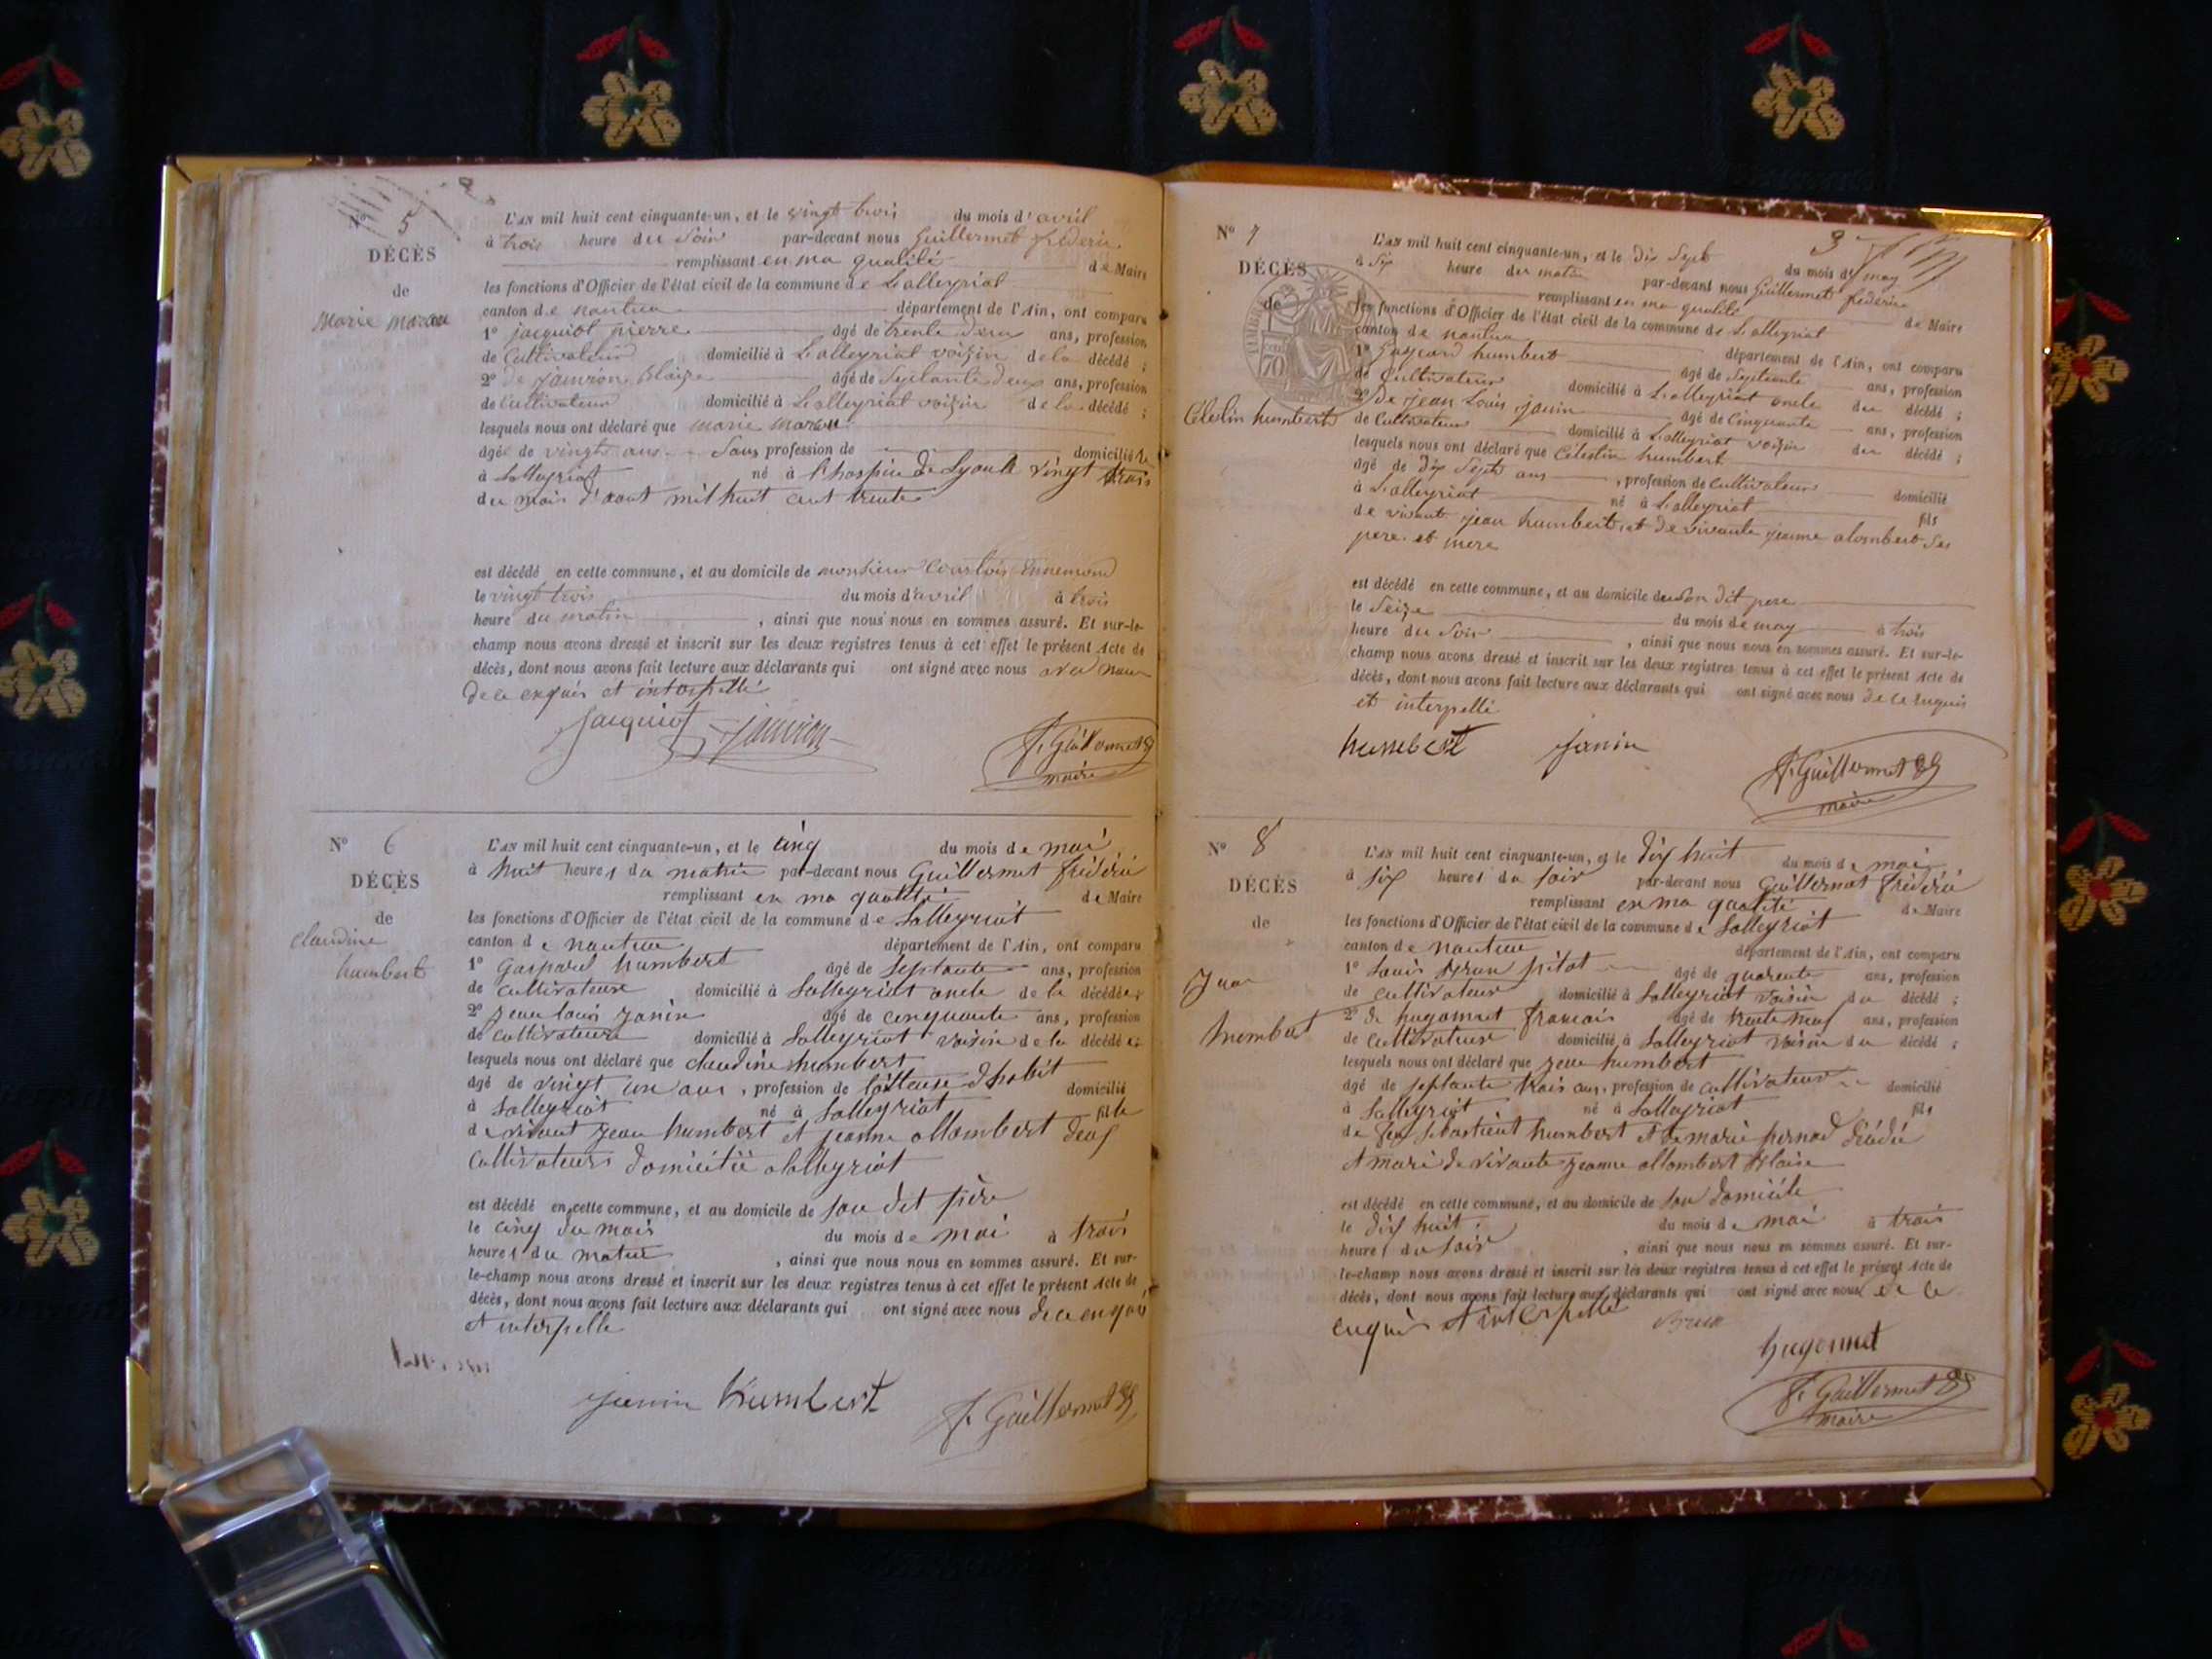 N° 5
DÉCÈS
de
Marie Moreau
L'AN mil huit cent cinquante-un, et le vingt trois du mois d'avril
à trois heure du Soir par-devant nous Guillermet frédéric
remplissant en ma qualité de Maire
les fonctions d'Officier de l'état civil de la commune de Lalleyriat
canton de nantua département de l'Ain, ont comparu
1° jacquiot pierre âgé de trente deux ans, profession
de Cultivateur domicilié à Lalleyriat voisin de la décédé ;
2° de janvion Blaize âgé de Septante deux ans, profession
de Cultivateur domicilié à Lalleyriat voisin de la décédé ;
lesquels nous ont déclaré que marie moreau
âgée de vingt ans Sans profession de domiciliée
à Lalleyriat né à l'hospice de Lyon le vingt trois
du mois d'aout mil huit cent trente
est décédé en cette commune, et au domicile de monsieur Courtois Ennemond
le vingt trois du mois d'avril à trois
heure du matin , ainsi que nous nous en sommes assuré. Et sur-le-
champ nous avons dressé et inscrit sur les deux registres tenus à cet effet le présent Acte de
décès, dont nous avons fait lecture aux déclarants qui ont signé avec nous
de ce enquis et interpellé
Jacquiot janvion F. Guillermet
maire
N° 6
DÉCÈS
de
Claudine
humbert
L'AN mil huit cent cinquante-un, et le cinq du mois de mai
à huit heures du matin par-devant nous Guillermet frédéric
remplissant en ma qualité de Maire
les fonctions d'Officier de l'état civil de la commune de Lalleyriat
canton de nantua département de l'Ain, ont comparu
1° gaspard humbert âgé de septante ans, profession
de cultivateur domicilié à Lalleyriat oncle de la décédée ;
2° jean louis janin âgé de cinquante ans, profession
de cultivateur domicilié à Lalleyriat voisin de la décédée ;
lesquels nous ont déclaré que claudine humbert
âgé de vingt un ans , profession de tailleuse d'habit domicilié
à Lalleyriat né à Lalleyriat fille
de vivant jean humbert et jeanne allombert deux
cultivateurs domicilié a lalleyriat
est décédé en cette commune, et au domicile de son dit père
le cinq du mois du mois de mai à trois
heures du matin , ainsi que nous nous en sommes assuré. Et sur-
le-champ nous avons dressé et inscrit sur les deux registres tenus à cet effet le présent Acte de
décès, dont nous avons fait lecture aux déclarants qui ont signé avec nous de ce enquis
et interpellé
janin humbert F. Guillermet
3
N° 7
DÉCÈS
de
Celestin humbert
L'AN mil huit cent cinquante-un, et le dix Sept du mois de may
à Six heure du matin par-devant nous Guillermet frederic
remplissant en ma qualité de Maire
les fonctions d'Officier de l'état civil de la commune de Lalleyriat
canton de nantua département de l'Ain, ont comparu
1° Gaspard humbert âgé de Septante ans, profession
de Cultivateur domicilié à Lalleyriat oncle du décédé ;
2° De jean Louis janin âgé de Cinquante ans, profession
de Cultivateur domicilié à Lalleyriat voisin du décédé ;
lesquels nous ont déclaré que Célestin humbert
âgé de dix Sept ans , profession de Cultivateur domicilié
à Lalleyriat né à Lalleyriat fils
de vivant jean humbert et de vivante jeanne alombert Ses
pere et mere
est décédé en cette commune, et au domicile de Son dit pere
le Seize du mois de may à trois
heure du Soir , ainsi que nous nous en sommes assuré. Et sur-le-
champ nous avons dressé et inscrit sur les deux registres tenus à cet effet le présent Acte de
décès, dont nous avons fait lecture aux déclarants qui ont signé avec nous de ce enquis
et interpellé
humbert janin F. Guillermet
maire
N° 8
DÉCÈS
de
Jean
humbert
L'AN mil huit cent cinquante-un, et le dix huit du mois de mai
à six heures du soir par-devant nous Guillermet frédéric
remplissant en ma qualité de Maire
les fonctions d'Officier de l'état civil de la commune de Lalleyriat
canton de nantua département de l'Ain, ont comparu
1° Louis Brun pitot âgé de quarante ans, profession
de cultivateur domicilié à Lalleyriat voisin du décédé ;
2° de hugonnet francois âgé de trente neuf ans, profession
de cultivateur domicilié à Lalleyriat voisin du décédé ;
lesquels nous ont déclaré que jean humbert
âgé de septante trois ans, profession de cultivateur domicilié
à Lalleyriat né à Lalleyriat fils
de feu sebastient humbert et de marie décédé
et mari de vivante jeanne allombert
est décédé en cette commune, et au domicile de son domicile
le dix huit du mois de mai à trois
heures du soir , ainsi que nous nous en sommes assuré. Et sur-
le-champ nous avons dressé et inscrit sur les deux registres tenus à cet effet le présent Acte de
décès, dont nous avons fait lecture aux déclarants qui ont signé avec nous de ce
enquis et interpellé
Brun
hugonnet
F. Guillermet
maire